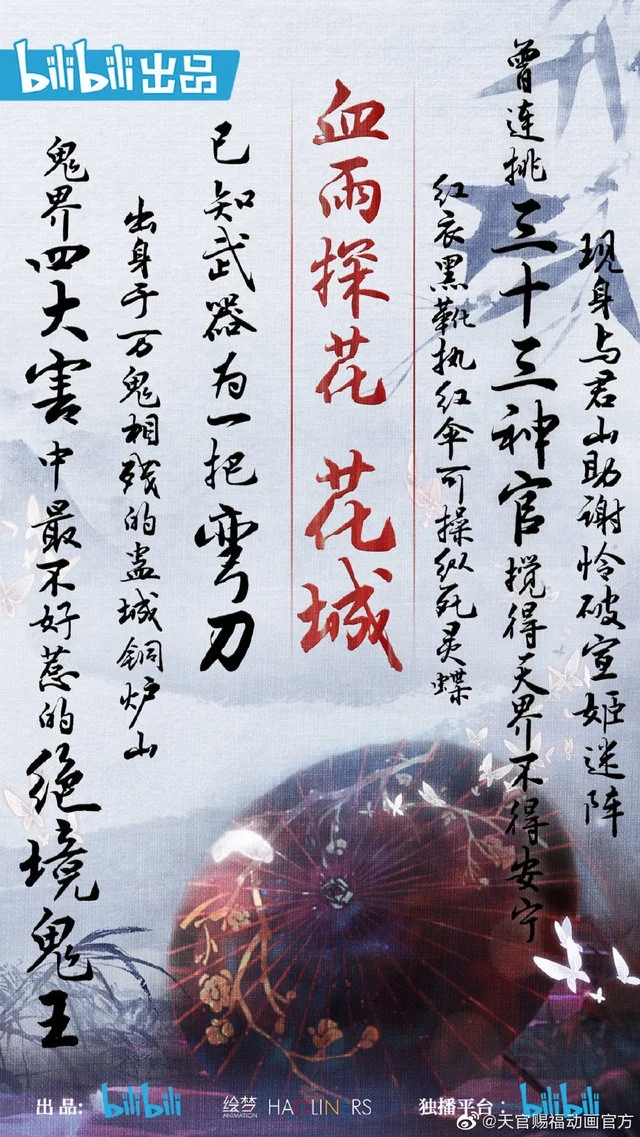 bilibili出品
现身与君山助谢怜破宣姬迷阵
曾连挑三十三神官搅得天界不得安宁
红衣黑靴执红伞可操纵死灵蝶
血雨探花 花城
已知武器为一把弯刀
出身于万鬼相残的蛊城铜炉山
鬼界四大害中最不好惹的绝境鬼王
出品：bilibili
绘梦
ANIMATION
HAOLINERS
独播平台：bilibili
@天官赐福动画官方